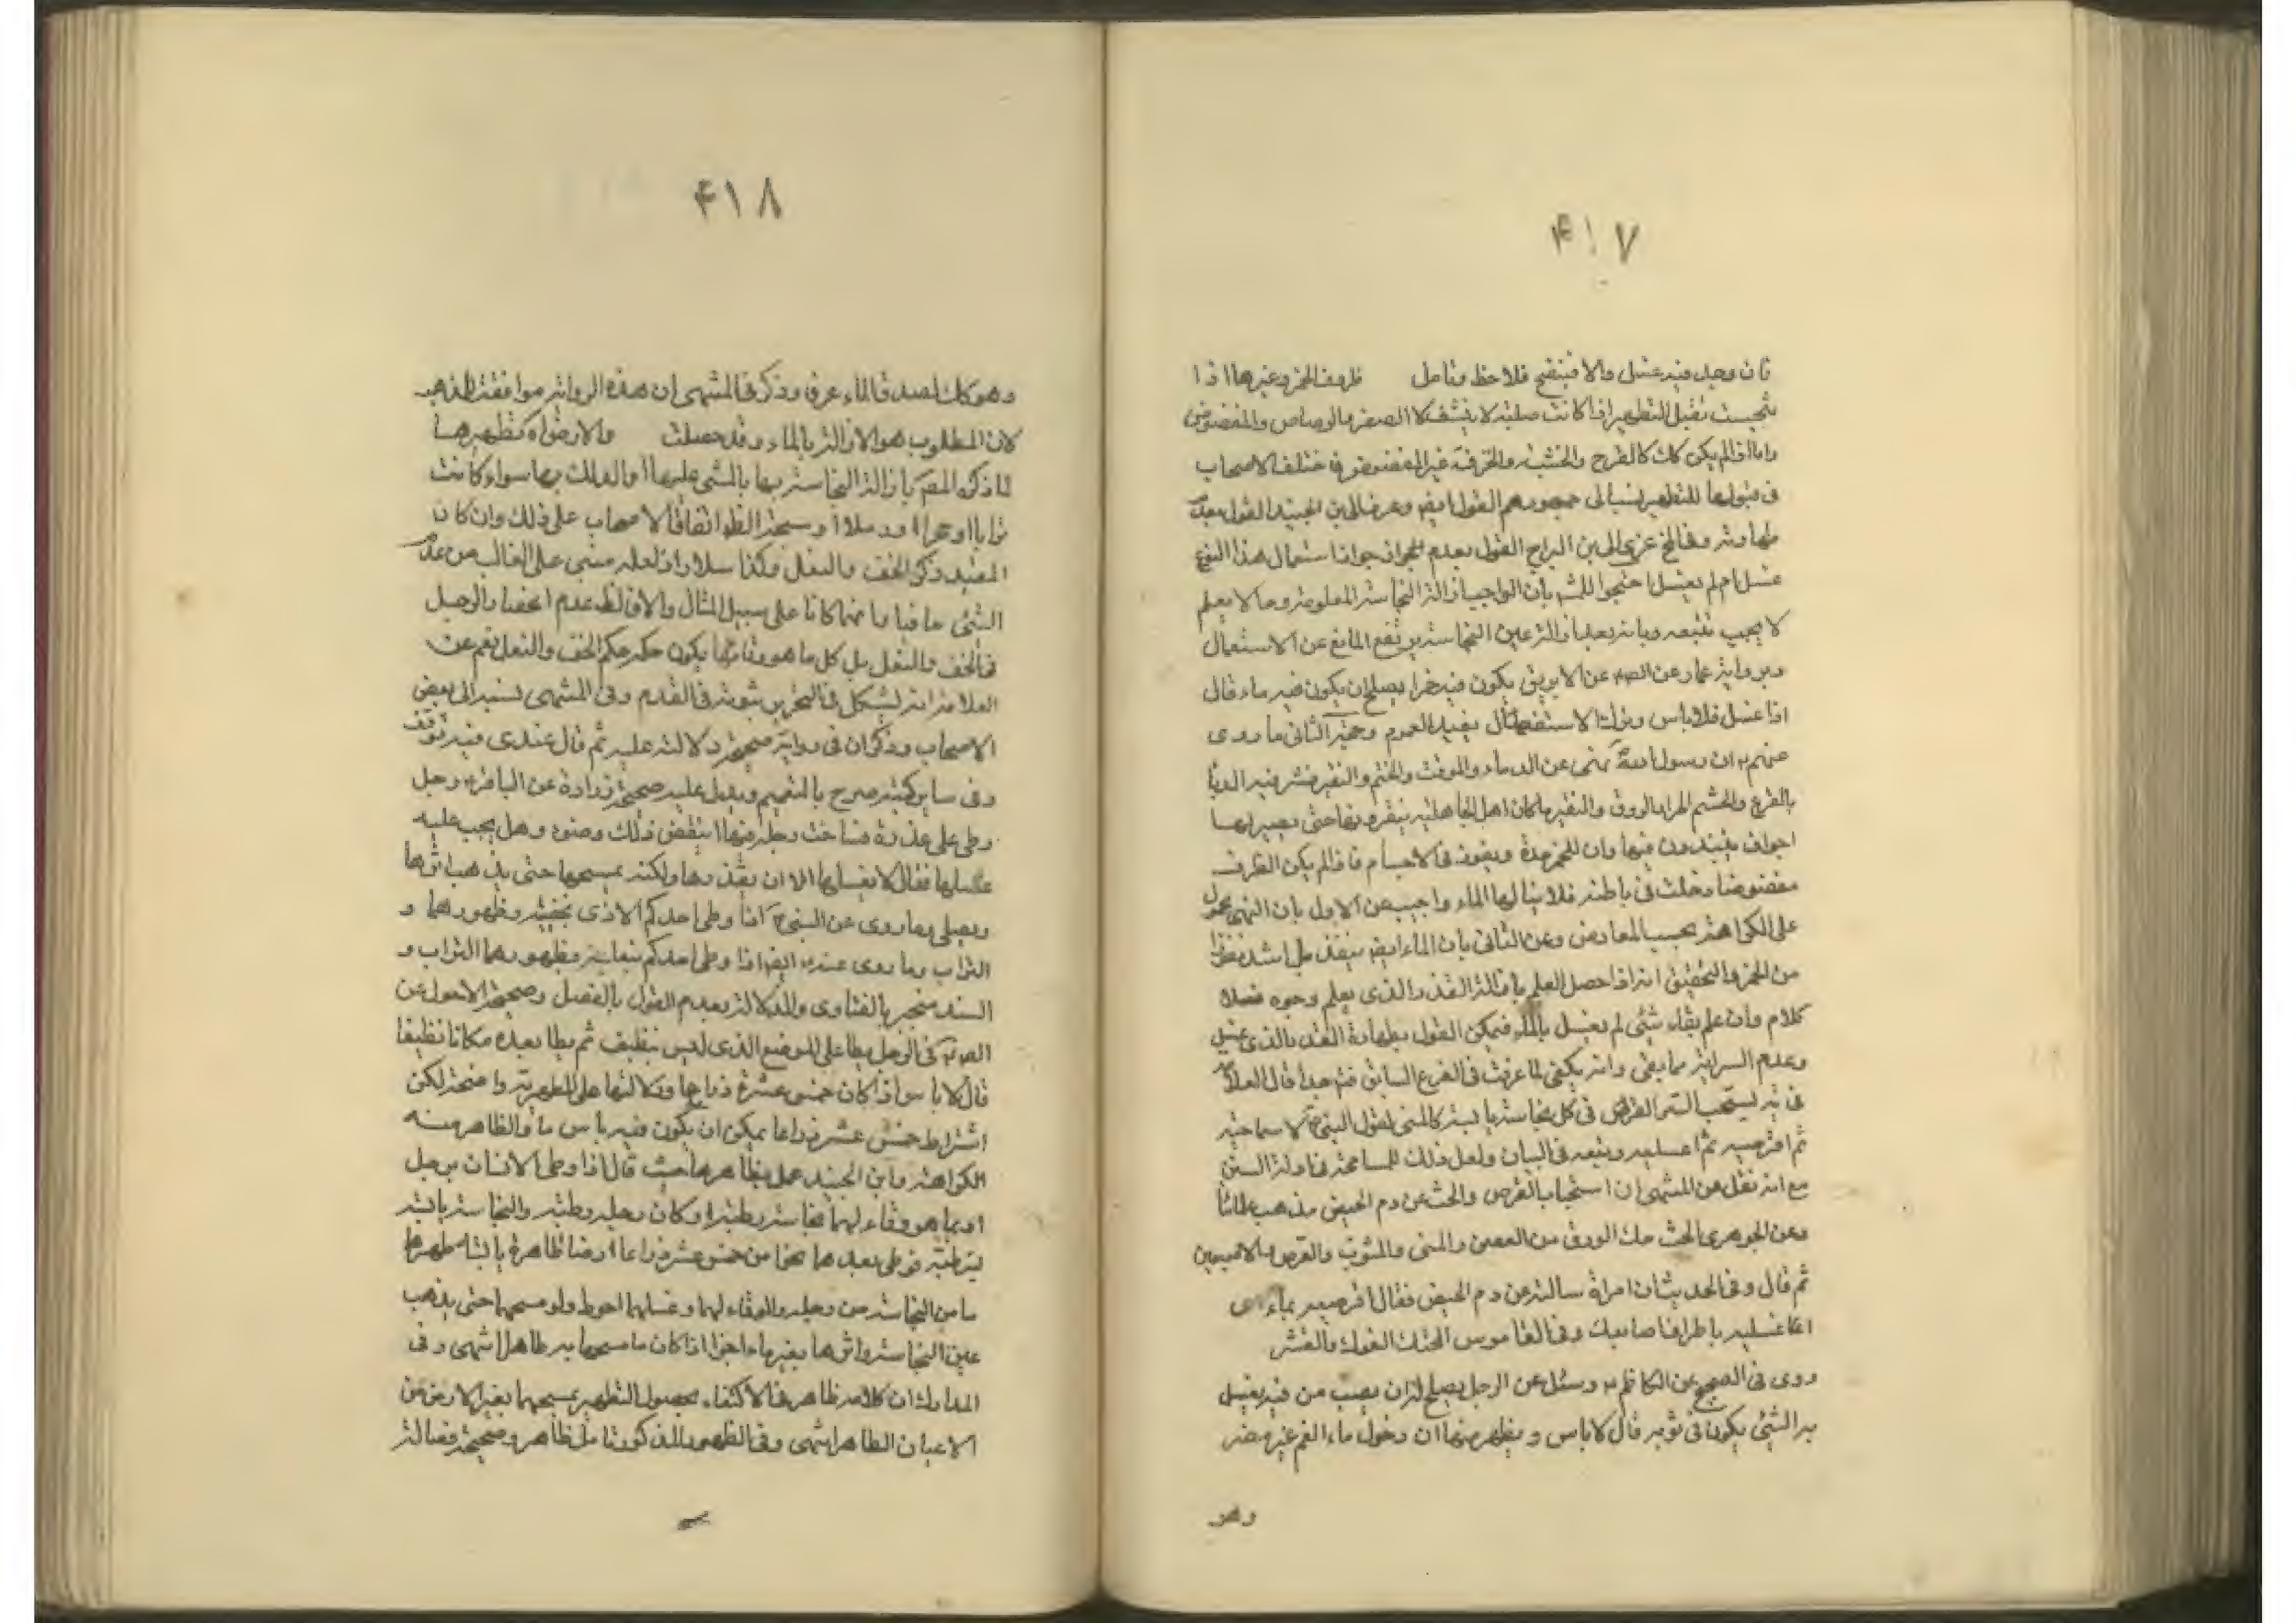 ۴۱۷
فان وجد فيه غسل والا فينضح فلاحظ وتامل ظروف الخمر وغيرها اذا
نجست تقبل التطهير اذا كانت صلبه لا ينشف كالصفر والرصاص والمغضور
واما اذا لم يكن كك كالقرح والخشب والخزف غير المغضور فاختلف الاصحاب
فى قبولها للتطهير فنسب الى جمهورهم القول به وعزى الى ابن الجنيد القول بعدم
طهارته وفى لخ عزى الى ابن البراج القول بعدم الجواز جواز استعمال هذا النوع
غسل ام لم يغسل احتجوا للمش بان الواجب ازالة النجاسة المعلومة وما لا يعلم
لا يجب تتبعه وبانه بعد ازالة عين النجاسة يرتفع المانع عن الاستعمال
وبرواية عمار عن الصم عن الابريق يكون فيه خمرا يصلح ان يكون فيه ماء قال
اذا غسل فلا باس وترك الاستفصال يفيد العموم وحجة الثانى ما روى
عنهم ان رسول الله نهى عن الدباء والمزفت والحنتم والنقير فسر فيه الدبا
بالقرع والحنتم الجرار الزرق والنقير ما كان اهل الجاهلية ينقرونها حتى يصير لها
اجواف ينبذون فيها وان للخمر حدة ونفوذ فى الاجسام فاذا لم يكن الظرف
مغضورا دخلت فى باطنه فلا ينالها الماء واجيب عن الاول بان النهى محمول
على الكراهة بحسب المعارض وعن الثانى بان الماء ايضا ينفذ بل اشد نفوذا
من الخمر والتحقيق انه اذا حصل العلم بازالة القذر الذى يعلم وجوده فلا
كلام وان علم بقاء شئ لم يغسل بالماء فيمكن القول بطهارة القدر الذى غسل
وعدم السراية مما بقى وانه يكفى لما عرفت فى الفرع السابق فتم جدا قال العلامة
فى يه يستحب القرص فى كل نجاسة يابسة كالمنى لقول النبى لاسما حتيه
ثم اقرصيه ثم اغسليه وتبعه فى البيان ولعل ذلك للمسامحة فى ادلة السنن
مع انه نقل عن المنتهى ان استحباب القرص والحت عن دم الحيض مذهب علمائنا
وعن الجوهرى الحت حك الورق من الغصن والمنى والثوب والقرص بالاصبعين
ثم قال وفى الحديث ان امراة سالته عن دم الحيض فقال اقرصيه بماء اى
اغسليه باطراف اصابعك وفى القاموس الحت الفرك والقشر
روى فى الصحيح عن الكاظم وسئل عن الرجل يصلح له ان يصب من فيه يغسل
به الشئ يكون فى ثوبه قال لا باس ويظهر منها ان دخول ماء الفم غير مضر
وهو
۴۱۸
وهو كك لصدق الماء عرفا وذكر فى المنتهى ان هذه الرواية موافقة للمذهب
لان المطلوب هو الازالة بالماء وقد حصلت والارض واه تطهيرها
لما ذكره المص بازالة النجاسة بها بالمشى عليها او الدلك بها سواء كانت
ترابا او حجرا او رملا وسبحة الظ اتفاق الاصحاب على ذلك وان كان
المفيد ذكر الخف والنعل وكذا سلار اذ لعله مبنى على الغالب من عدم
المشى حافيا وانهما كانا على سبيل المثال والا فالظ عدم انحصاره بالرجل
فالخف والنعل بل كل ما هو وقاء لها يكون حكمه حكم الخف والنعل نعم عن
العلامة انه استشكل فى التحرير بثبوته فى القدم وفى المنتهى نسبه الى بعض
الاصحاب وذكر ان فى رواية صحيحة دلالة عليه ثم قال عندى فيه توقف
وفى ساير كتبه صرح بالتعميم ويدل عليه صحيحة زرارة عن الباقر رجل
وطى على عذرة فساخت رجله فيها اينقض ذلك وضوءه وهل يجب عليه
غسلها فقال لا يغسلها الا ان يقذرها ولكنه يمسحها حتى يذهب اثرها
ويصلى وما روى عن النبى اذا وطى احدكم الاذى بخفيه وطهورهما و
التراب وما روى عنه ايضا اذا وطى احدكم بنعليه وطهورهما التراب و
السند منجبر بالفتاوى والدلالة بعدم القول بالفصل وصحيحة الاحول عن
الصم فى الرجل يطا على الموضع الذى ليس بنظيف ثم يطا بعده مكانا نظيفا
قال لا باس اذا كان خمس عشرة ذراعا ودلالتها على المطهرية واضحة لكن
اشتراط خمس عشر ذراعا يمكن ان يكون فيه باس ما والظاهر منه
الكراهة وابن الجنيد عمل بظاهرها حيث قال اذا وطى الانسان برجل
او بما هو وقاء لها نجاسة رطبة او كان رجله رطبه والنجاسة يابسة
يترطبه فوطى بعدهما نحوا من خمس عشر ذراعا ارضا طاهرة يابسة طهرها
ما من النجاسة من رجله والوقاء لهما وغسلهما احوط ولو مسحهما حتى يذهب
عين النجاسة واثرها بغير ماء اجزا اذا كان ما مسحها به طاهرا انتهى وفى
المدارك ان كلامه ظاهر فى الاكتفاء بحصول التطهير بمسحهما بغير الارض من
الاعيان الطاهرة انتهى وفى الظهور المذكور تامل ظاهر وصحيحة فضالة